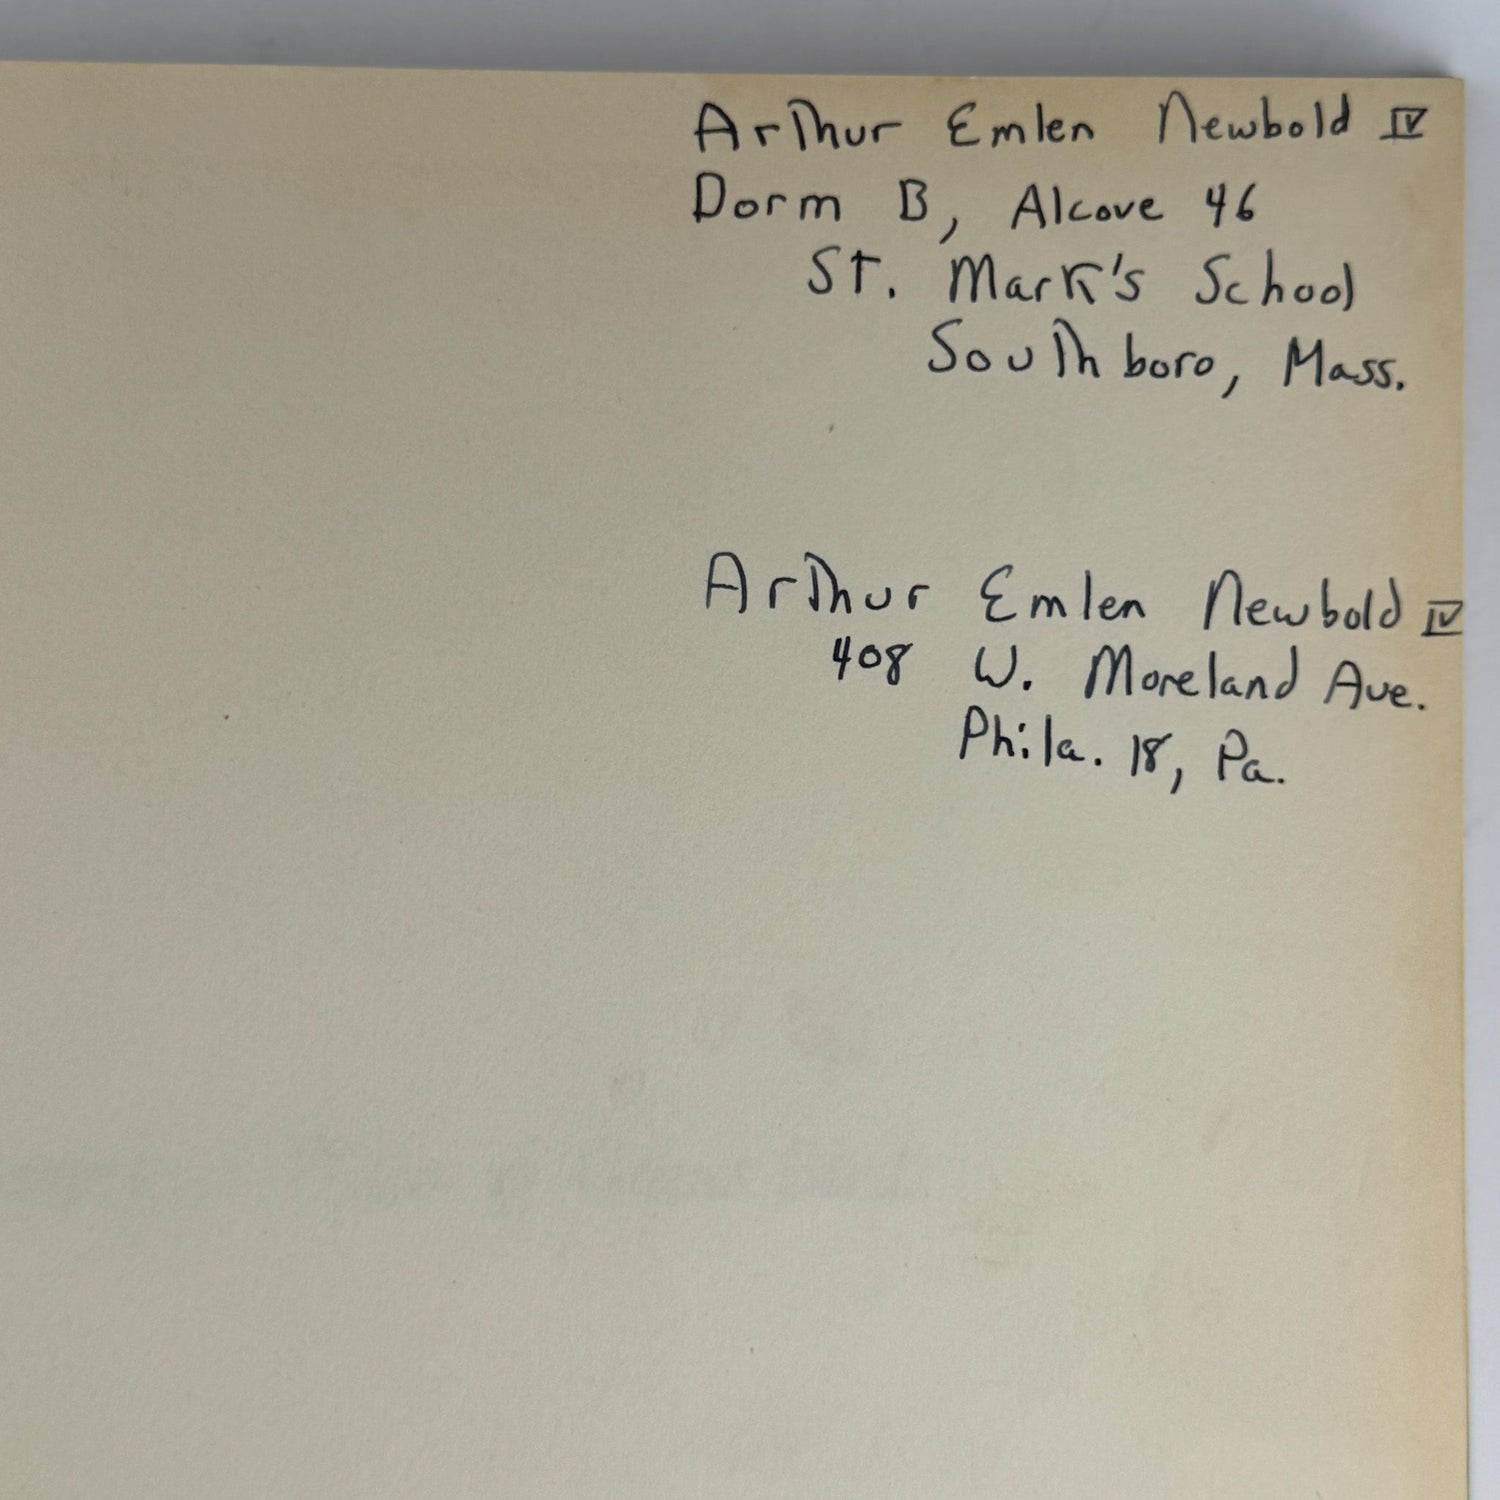 Arthur Emlen Newbold IV
Dorm B, Alcove 46
St. Mark's School
Southboro, Mass.
Arthur Emlen Newbold IV
408 W. Moreland Ave.
Phila. 18, Pa.